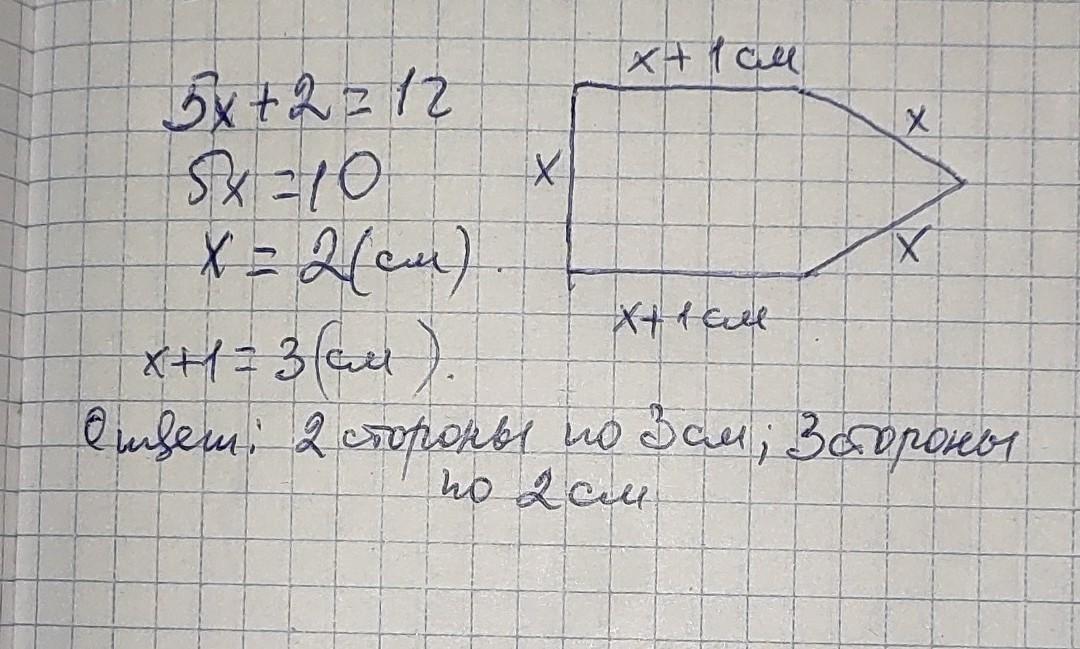 5x+2=12
5x=10
x=2(см).
x+1=3(см).
x+1см
x
x
x
x+1см
Ответ: 2 стороны по 3см; 3 стороны
по 2см